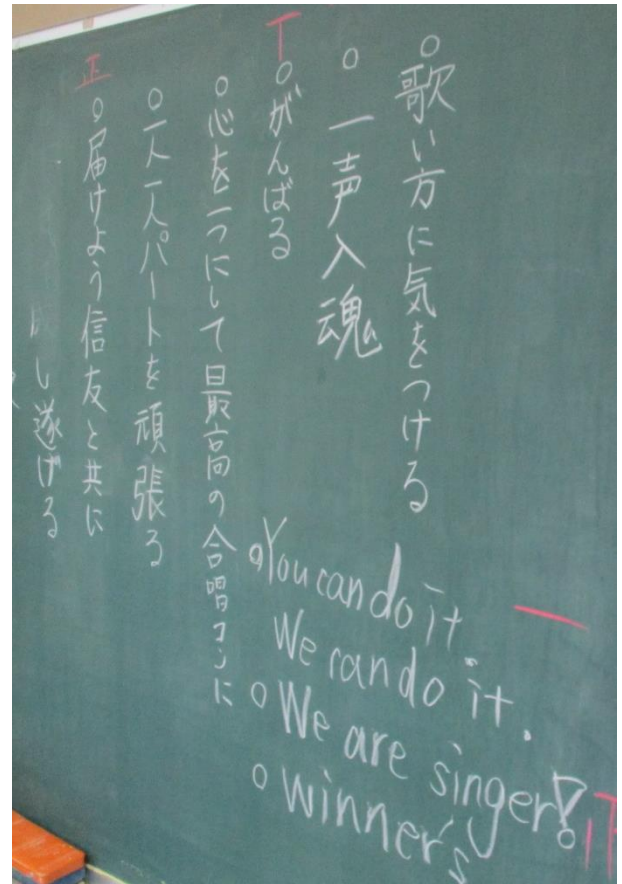 ○歌い方に気をつける
○一声入魂
○がんばる
○心を一つにして最高の合唱コンに
○一人一人パートを頑張る
○届けよう信友と共に
し遂げる
○You can do it.
We can do it.
○We are singer!
○winner's
一
丅
正
正